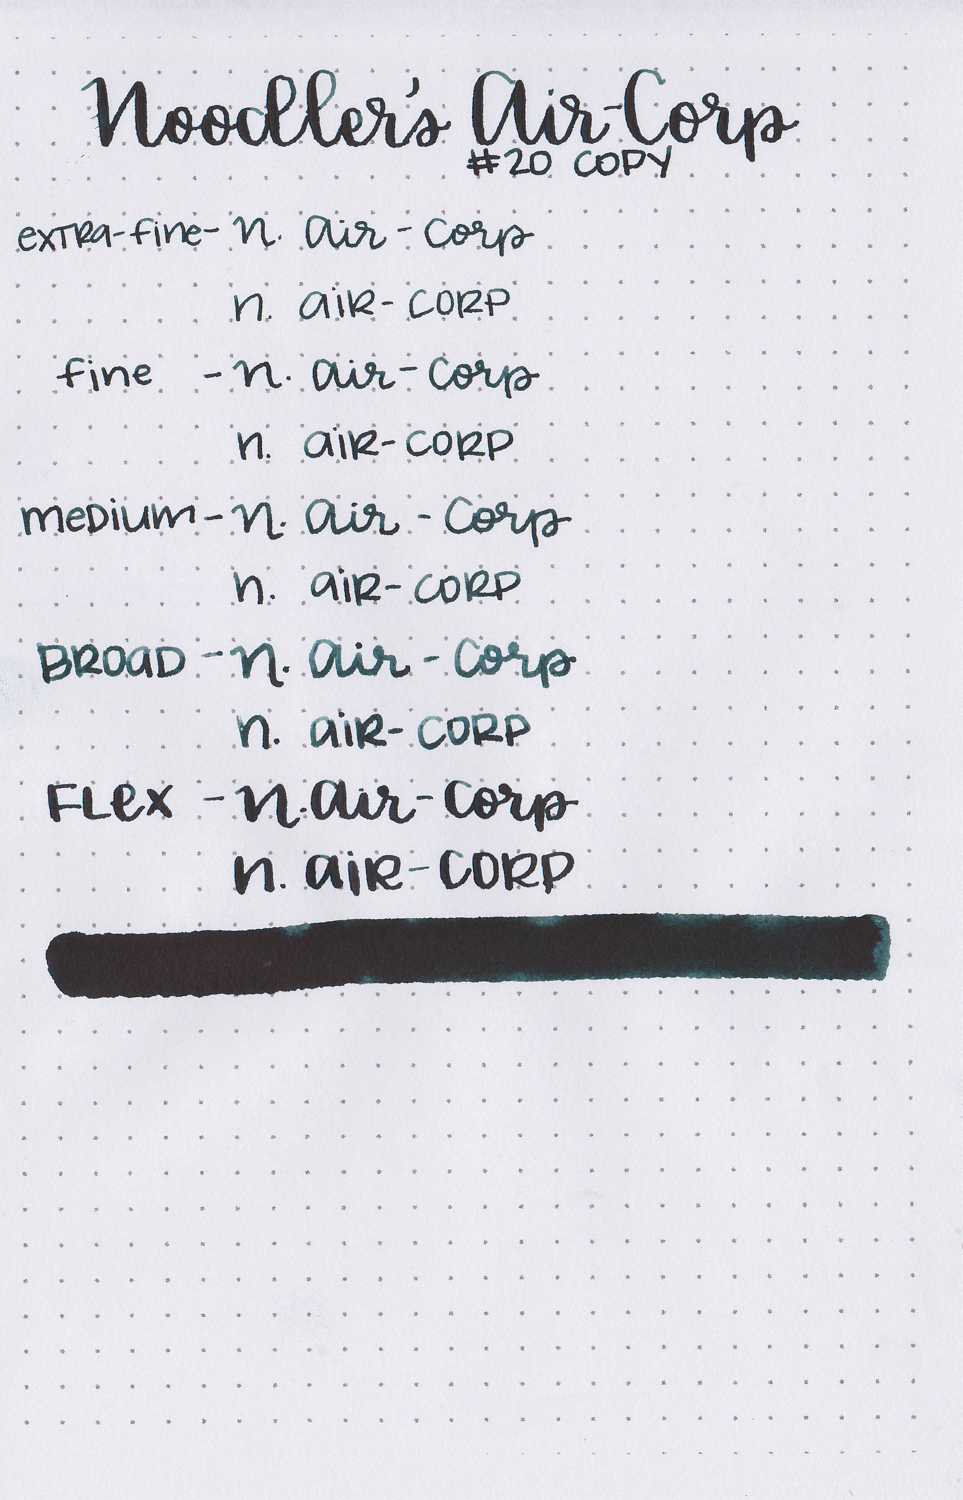 Noodler's Air-Corp
#20 COPY
extra-fine- n. air - corp
n. air-CORP
fine - n. air-corp
n. air-CORP
medium - n. air - corp
n. air-CORP
BROAD - n. air - corp
n. air-CORP
FLex - n. air-corp
n. air-CORP